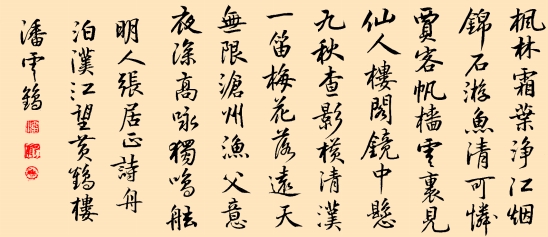 楓林霜葉淨江烟
錦石游魚清可憐
賈客帆檣雲裏見
仙人樓閣鏡中懸
九秋查影橫清漢
一笛梅花落遠天
無限滄州漁父意
夜深高咏獨鳴舷
明人張居正詩舟
泊漢江望黃鶴樓
潘雲鶴